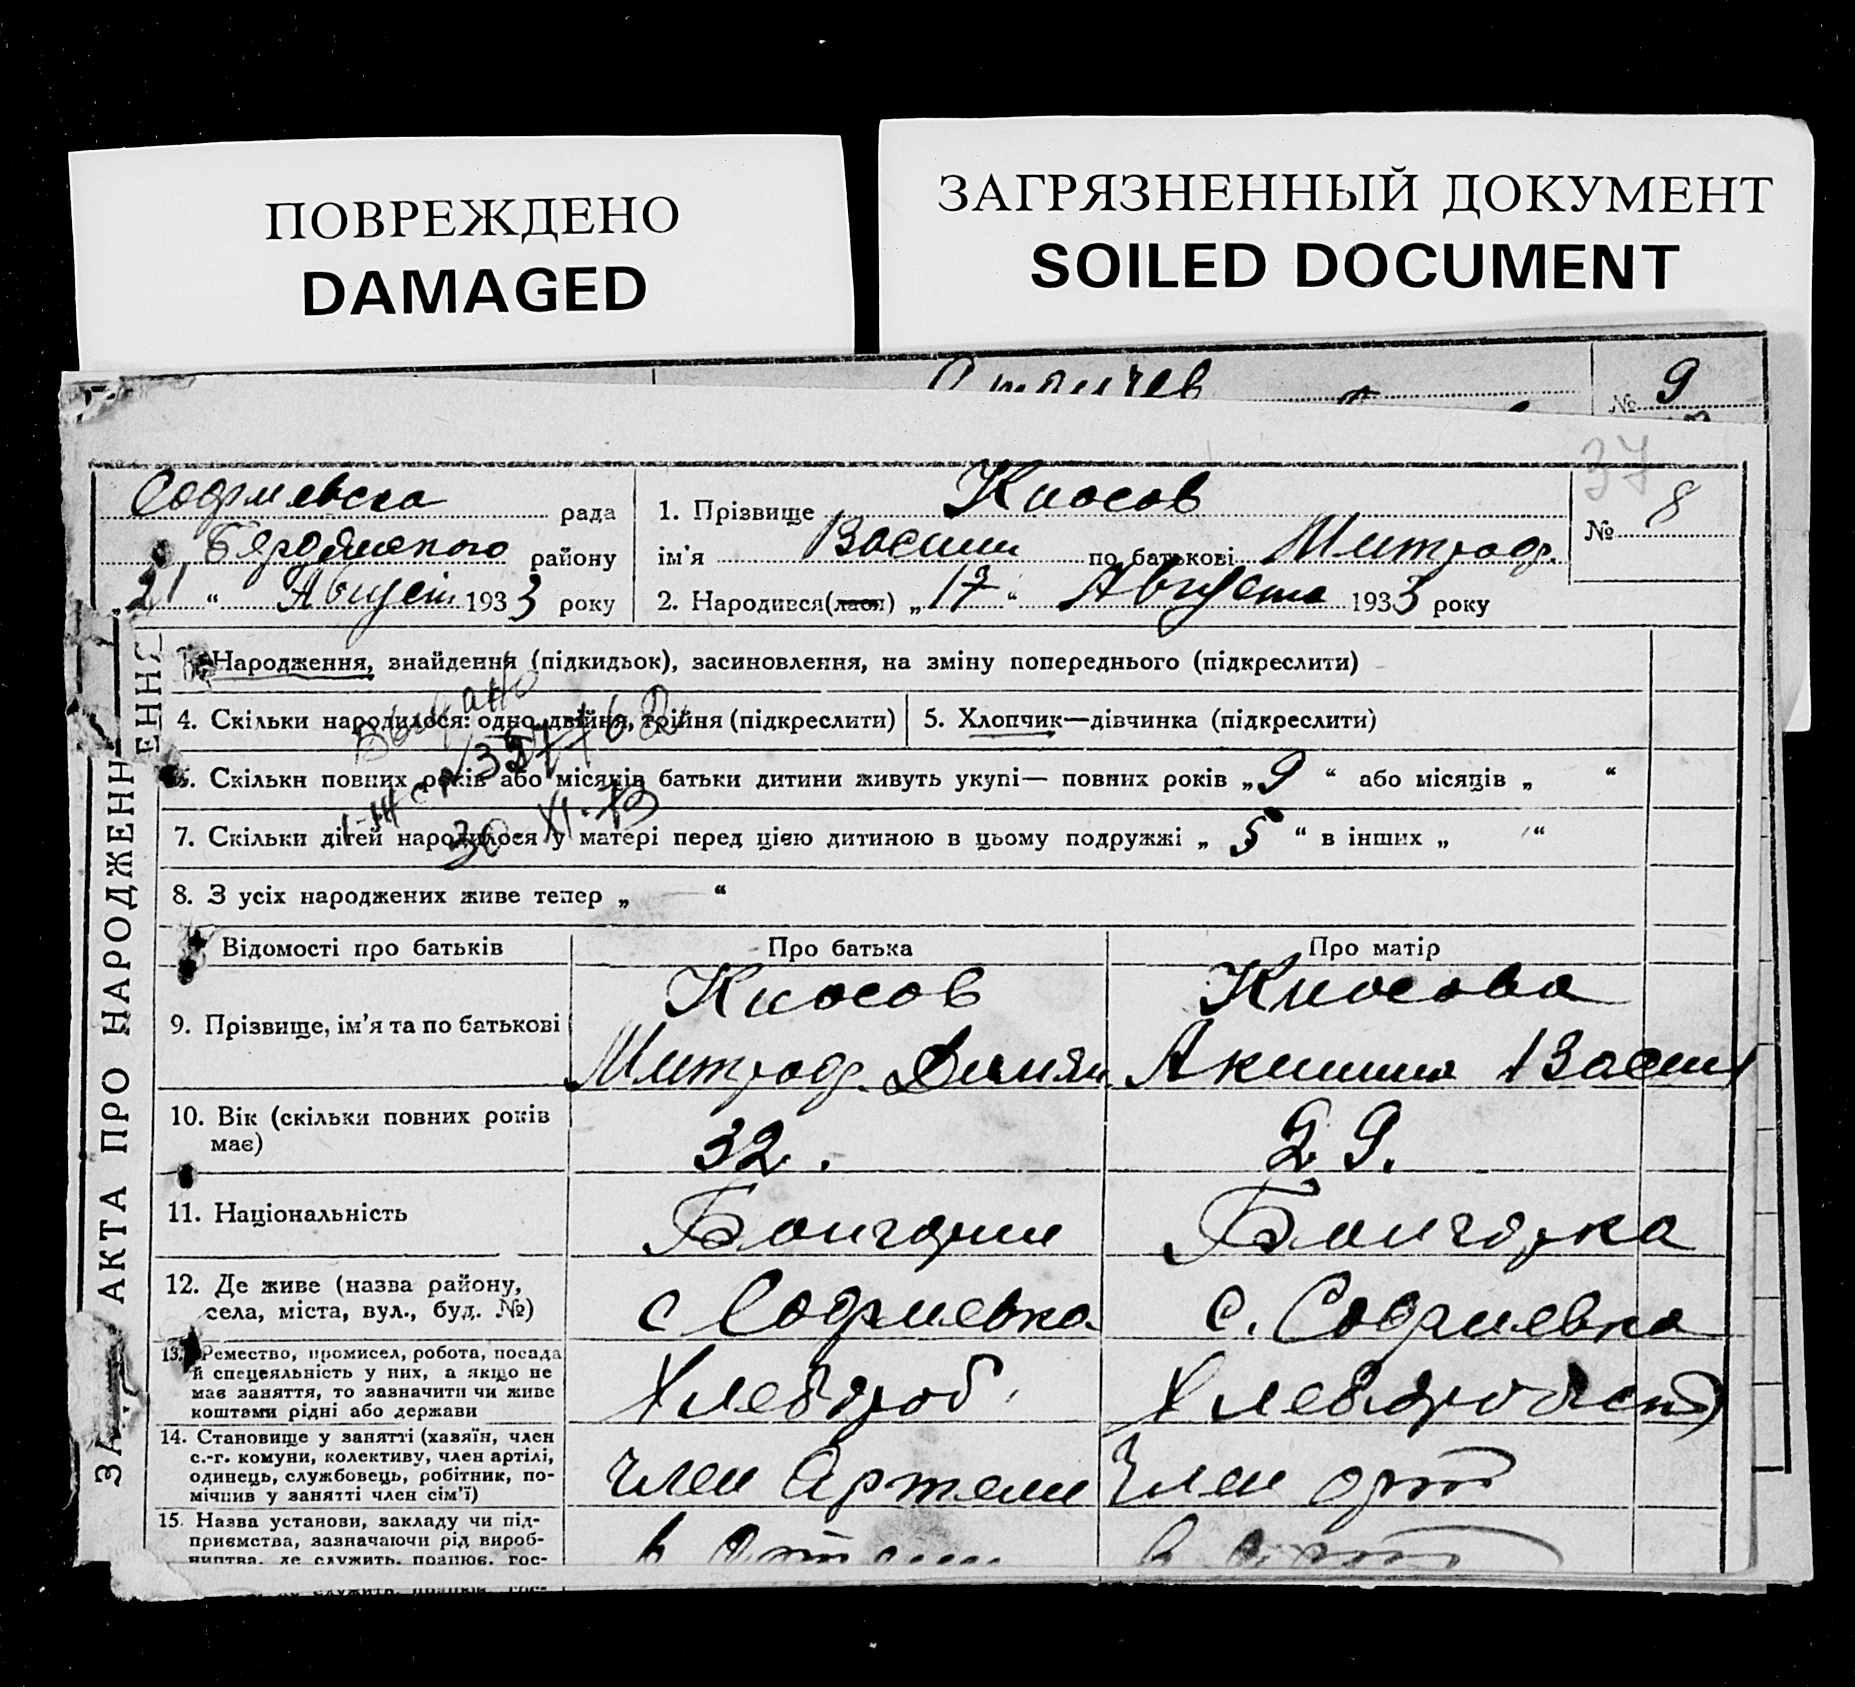 ПОВРЕЖДЕНО
DAMAGED
ЗАГРЯЗНЕННЫЙ ДОКУМЕНТ
SOILED DOCUMENT
№ 9
37
рада
району
21 “ Август 1933 року
1. Прізвище Киосов
ім’я Васили по батькові Митроф.
2. Народився(лася) „ 17 “ Августа 1933 року
№ 8
ЗА АКТА ПРО НАРОДЖЕНН
ЕННЯ
Народження, знайдення (підкидьок), засиновлення, на зміну попереднього (підкреслити)
4. Скільки народилося: одно, двійня, трійня (підкреслити)
5. Хлопчик—дівчинка (підкреслити)
6. Скільки повних років або місяців батьки дитини живуть укупі— повних років „ 9 “ або місяців „ “
7. Скільки дітей народилося у матері перед цією дитиною в цьому подружжі „ 5 “ в інших „ “
8. З усіх народжених живе тепер „ — “
30 XI-73
Відомості про батьків
Про батька
Про матір
9. Прізвище, ім’я та по батькові
Киосов
Митроф. Демян
Киосова
Акилина Васил
10. Вік (скільки повних років
має)
32.
29.
11. Національність
Болгарин
Болгарка
12. Де живе (назва району,
села, міста, вул., буд. №)
с Софиевка
с. Софиевка
13. Ремество, промисел, робота, посада
й спецеяльність у них, а якщо не
має заняття, то зазначити чи живе
коштами рідні або держави
Хлебороб
14. Становище у занятті (хазяїн, член
с.-г. комуни, колективу, член артілі,
одинець, службовець, робітник, по-
мічнив у занятті член сім’ї)
Член Артели
Член арт
15. Назва установи, закладу чи під-
приємства, зазначаючи рід вироб-
ництва, де служить, працює, гос-